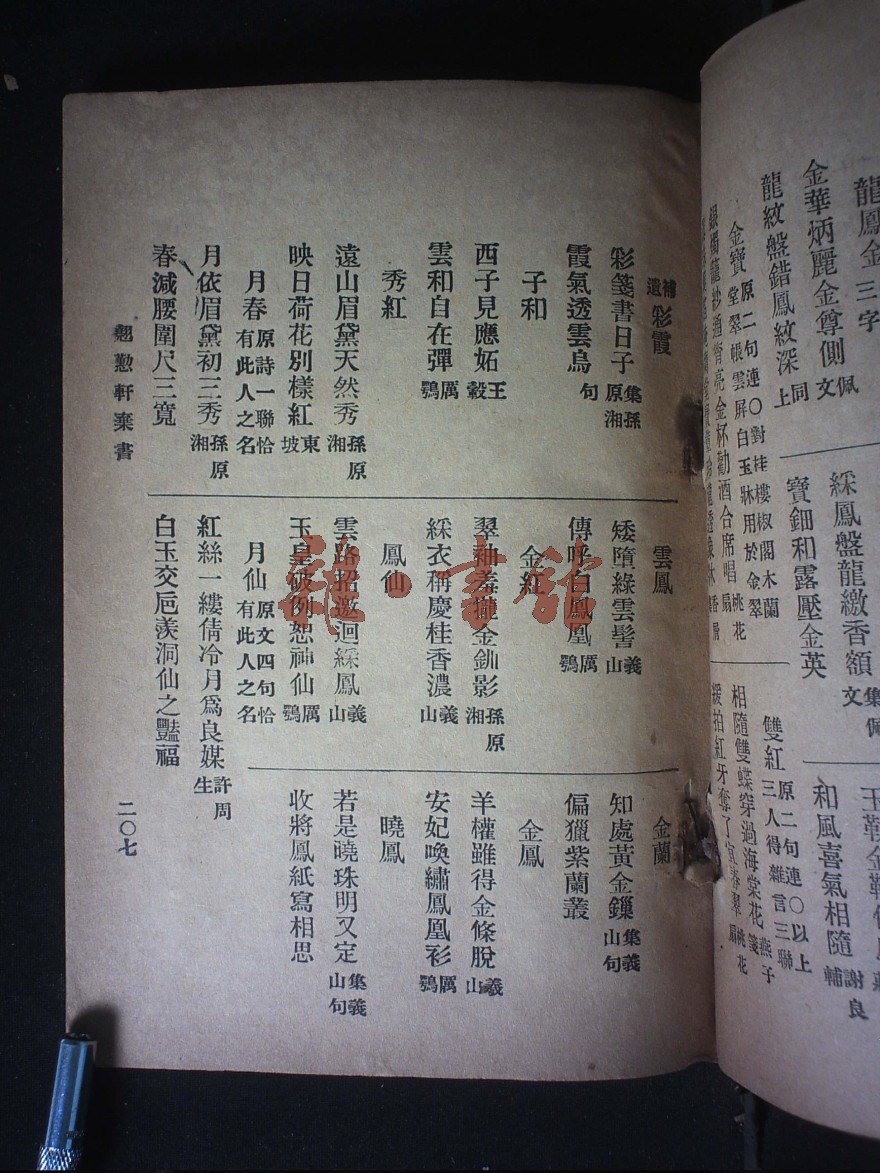 龍鳳金三字
金華炳麗金尊側佩文
龍紋盤錯鳳紋深同上
金寶原二句連〇對桂樓椒閣木蘭堂翠帳雲屏白玉牀用於金翠
銀燭籠紗通宵亮金杯勸酒合席唱桃花扇
綵鳳盤龍繳香額集佩文
寶鈿和露壓金英
雙紅原二句連〇以上三人得雜言三聯
相隨雙蝶穿過海棠花燕子箋
緩拍紅牙奪了
和風喜氣相隨謝良輔
補遺
彩霞
彩箋書日子集孫原湘句
霞氣透雲鳥
子和
西子見應妬王轂
雲和自在彈厲鶚
秀紅
遠山眉黛天然秀孫原湘
映日荷花別樣紅東坡
月春原詩一聯恰有此人之名
月依眉黛初三秀孫原湘
春減腰圍尺三寬
雲鳳
矮墮綠雲髻義山
傳呼白鳳凰厲鶚
金紅
翠袖羞攏金釧影孫原湘
綵衣稱慶桂香濃義山
鳳仙
雲路招邀迴綵鳳義山
玉皇破例恕神仙厲鶚
月仙原文四句恰有此人之名
紅絲一縷倩冷月為良媒許周生
白玉交卮羡洞仙之豔福
金蘭
知處黃金鏁集義山句
偏獵紫蘭叢
金鳳
羊權雖得金條脫義山
安妃喚繡鳳凰衫厲鶚
曉鳳
若是曉珠明又定集義山句
收將鳳紙寫相思
翹懃軒棄書
二〇七
雜·書館